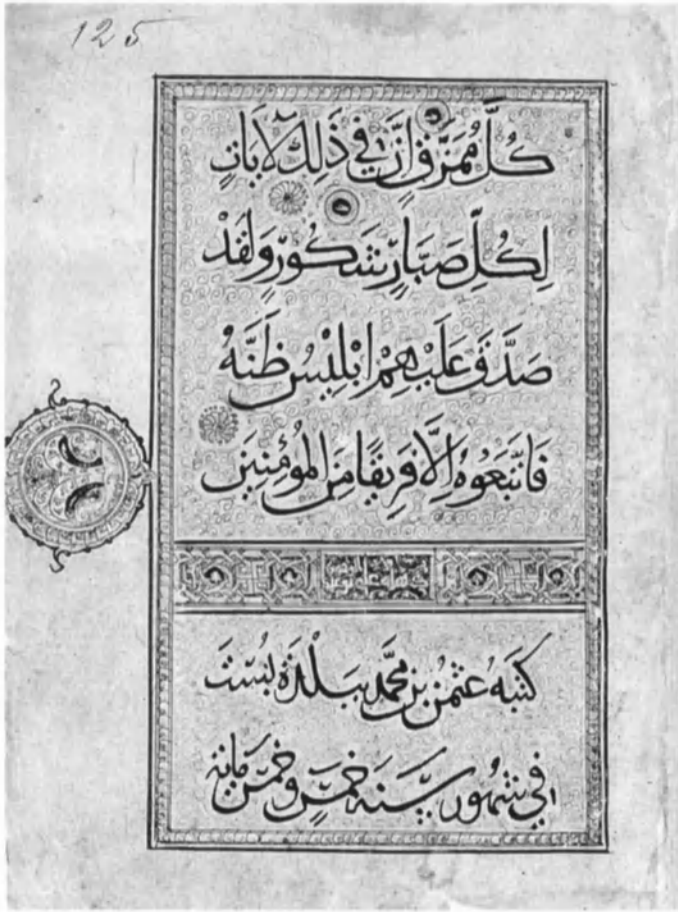 125
كُلَّ مُمَزَّقٍ إِنَّ فِي ذَلِكَ لَآيَاتٍ
لِكُلِّ صَبَّارٍ شَكُورٍ وَلَقَدْ
صَدَّقَ عَلَيْهِمْ إِبْلِيسُ ظَنَّهُ
فَاتَّبَعُوهُ إِلَّا فَرِيقًا مِنَ الْمُؤْمِنِينَ
كتبهُ عثمن بن محمّد ببلدة بُست
في شهور سنة خمسٍ وخمس مائة